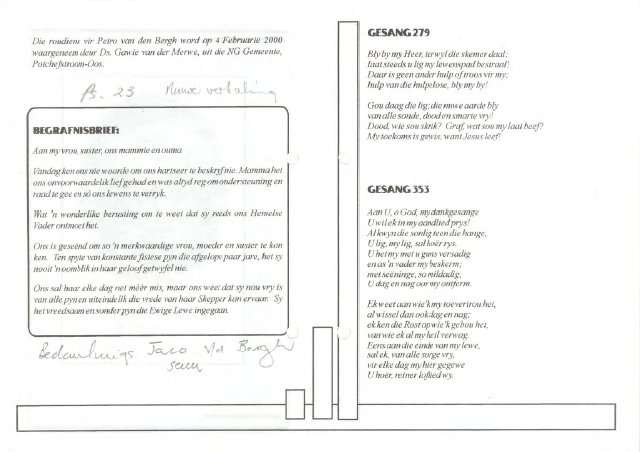 Die roudiens vir Petro van den Bergh word op 4 Februarie 2000
waargeneem deur Ds. Gawie van der Merwe, uit die NG Gemeente,
Potchefstroom-Oos.
Ps. 23 Nuwe vertaling
BEGRAFNISBRIEF:
Aan my vrou, suster, ons mammie en ouma
Vandag ken ons nie woorde om ons hartseer te beskryf nie. Mamma het
ons onvoorwaardelik lief gehad en was altyd reg om ondersteuning en
raad te gee en só ons lewens te verryk.
Wat 'n wonderlike berusting om te weet dat sy reeds ons Hemelse
Vader ontmoet het.
Ons is geseënd om so 'n merkwaardige vrou, moeder en suster te kon
ken. Ten spyte van konstante fisiese pyn die afgelope paar jare, het sy
nooit 'n oomblik in haar geloof getwyfel nie.
Ons sal haar elke dag net méér mis, maar ons weet dat sy nou vry is
van alle pyn en uiteindelik die vrede van haar Skepper kan ervaar. Sy
het vreedsaam en sonder pyn die Ewige Lewe ingegaan.
Bedankings Jaco v/d Bergh
seun
GESANG 279
Bly by my Heer, terwyl die skemer daal;
laat steeds u lig my lewenspad bestraal!
Daar is geen ander hulp of troos vir my;
hulp van die hulpelose, bly my by!
Gou daag die lig; die nuwe aarde bly
van alle sonde, dood en smarte vry!
Dood, wie sou skrik? Graf, wat sou my laat beef?
My toekoms is gewis, want Jesus leef!
GESANG 353
Aan U, o God, my dankgesange
U wil ek in my aandlied prys!
Al kwyn die sonlig teen die hange,
U lig, my lig, sal hoër rys.
U het my met u guns versadig
en as 'n vader my beskerm;
met seëninge, so mildadig,
U dag en nag oor my ontferm.
Ek weet aan wie 'k my toevertrou het,
al wissel dan ook dag en nag;
ek ken die Rots op wie 'k gebou het,
van wie ek al my heil verwag.
Eens aan die einde van my lewe,
sal ek, van alle sorge vry,
vir elke dag my hier gegewe
U hoër, reiner loflied wy.